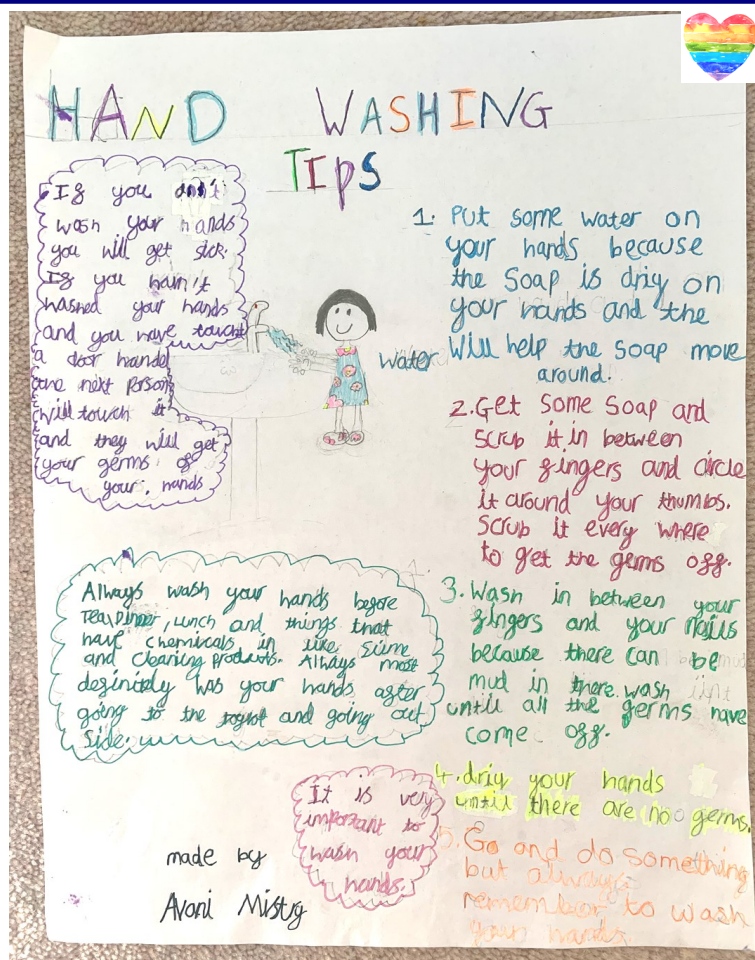 HAND WASHING
TIPS
If you don't
wash your hands
you will get sick.
If you hain't
washed your hands
and you have toucht
a door handel
the next Person
will touch it
and they will get
your germs of
your, hands
1. Put some water on
your hands because
the Soap is driy on
your hands and the
water Will help the soap move
around.
2. Get Some Soap and
Scrub it in between
your fingers and circle
it around your thumbs.
Scrub it every where
to get the germs off.
3. Wash in between your
fingers and your nails
because there can be
mud in there. wash
until all the germs have
come off.
4. driy your hands
until there are no germs.
5. Go and do something
but always
remember to wash
your hands.
Always wash your hands before
Tea, Dinner, Lunch and things that
have chemicals in like Slime
and cleaning products. Always most
definitely was your hands after
going to the and going out
Side.
It is very
important to
wash your
hands.
made by
Avani Mistry